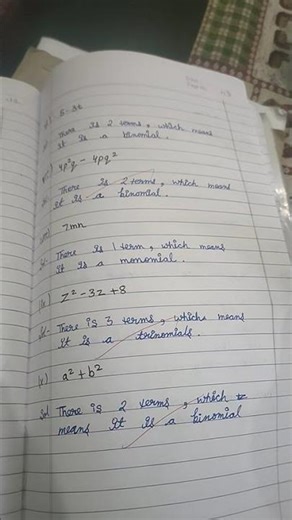 5-3t
There is 2 terms, which means
it is a binomial.
4p²q - 4pq²
There is 2 terms, which means
it is a binomial.
7mn
There is 1 term, which means
It is a monomial.
z² - 3z + 8
Sol- There is 3 terms, which means
it is a trinomials.
a² + b²
Sol There is 2 verms, which
means it is a binomial